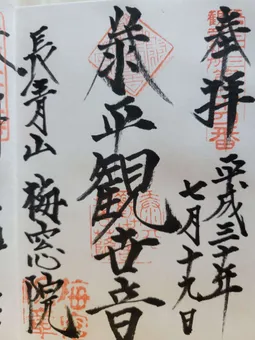 奉拝
平成三十年
七月十九日
泰平観世音
長青山 梅窓院